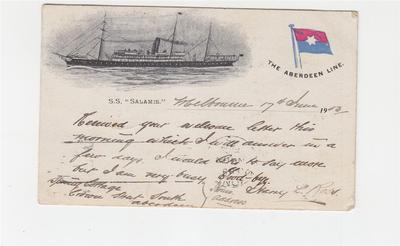 THE ABERDEEN LINE.
S.S. "SALAMIS."
Melbourne 17th June 1902
Received your welcome letter this
morning which I will answer in a
few days. I would like to say more
but I am very busy Good-bye.
Cottage
Street South
Aberdeen
Your
address
Henry L.